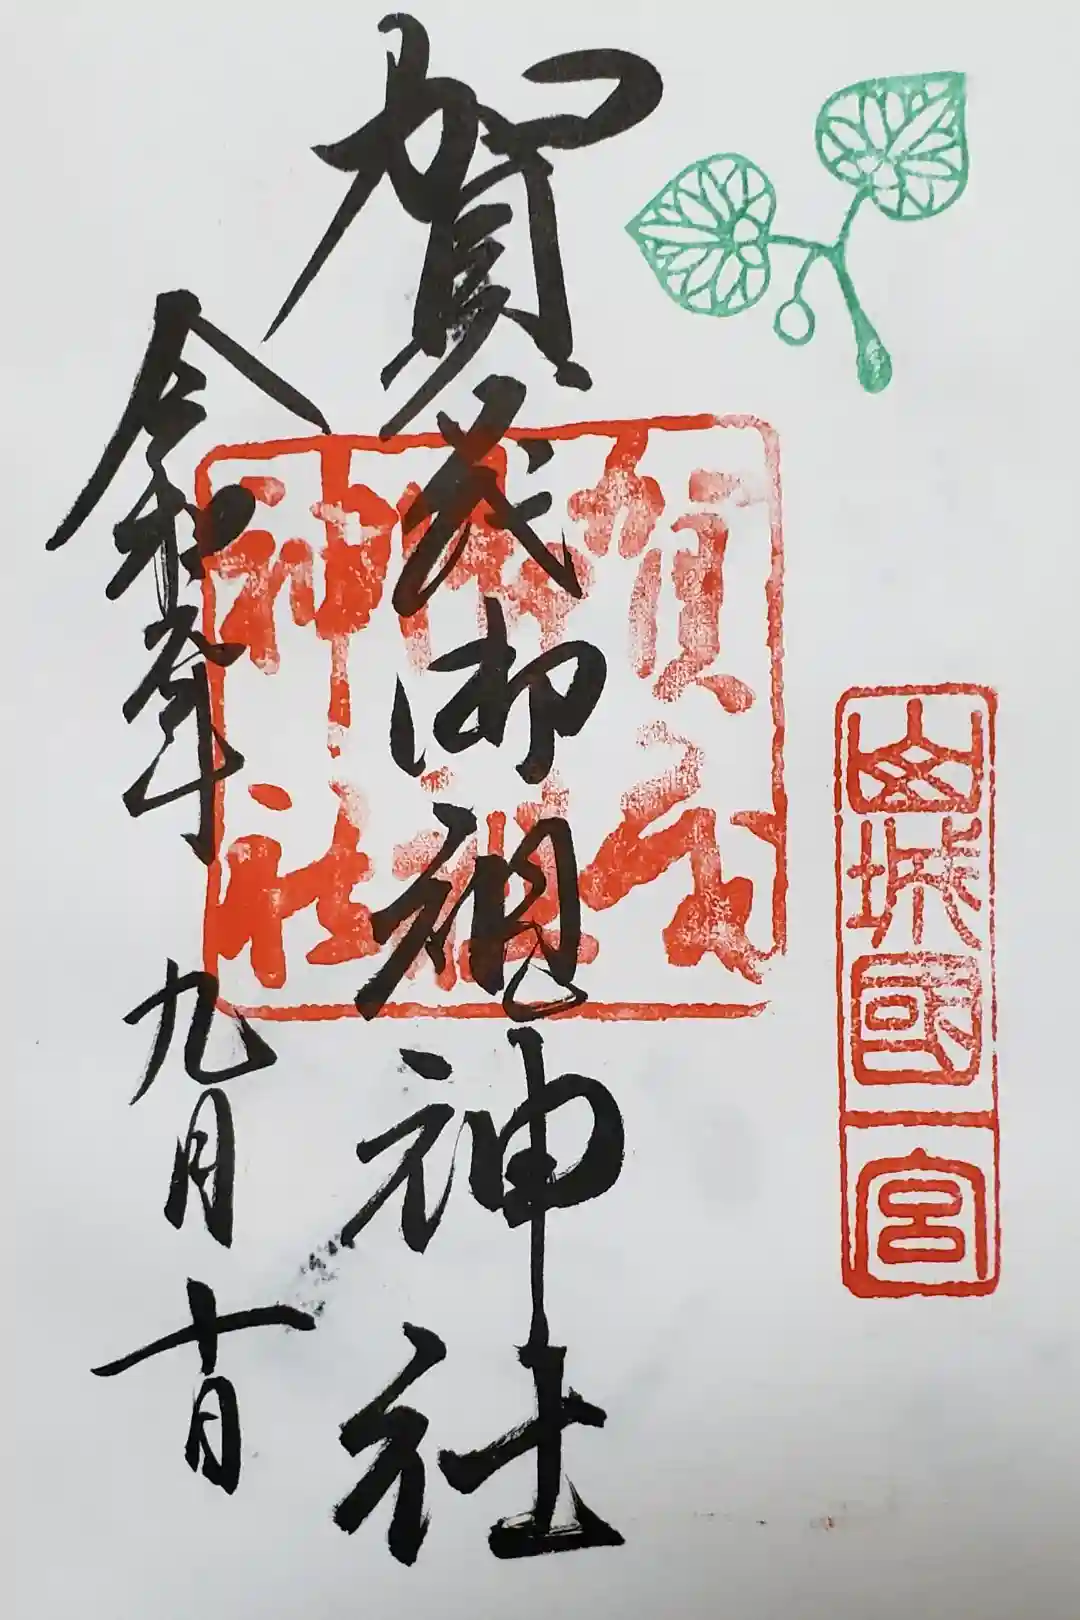 山城國
一宮
賀茂御祖神社
賀茂
御祖
神社
令和元年九月十日